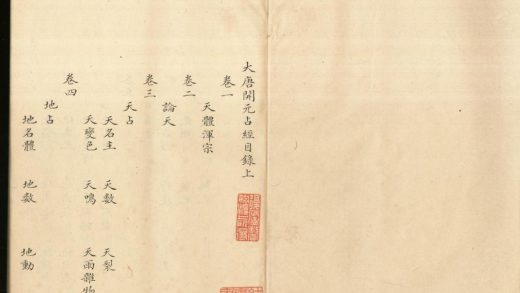 大唐開元占經目錄上
卷一
天體渾宗
卷二
論天
卷三
天占
天名主 天數 天裂
天變色 天鳴 天雨雜物
卷四
地占
地名體 地數 地動